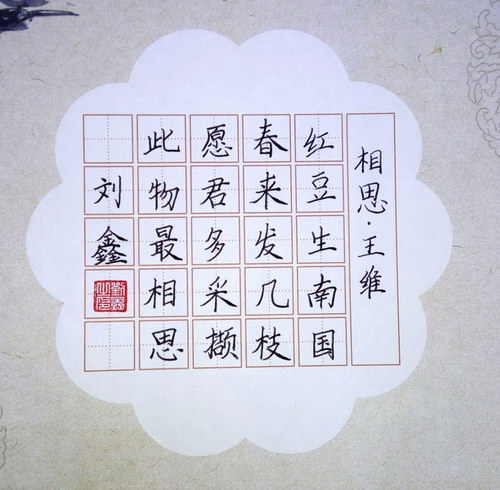 相思·王维
红豆生南国
春来发几枝
愿君多采撷
此物最相思
刘鑫